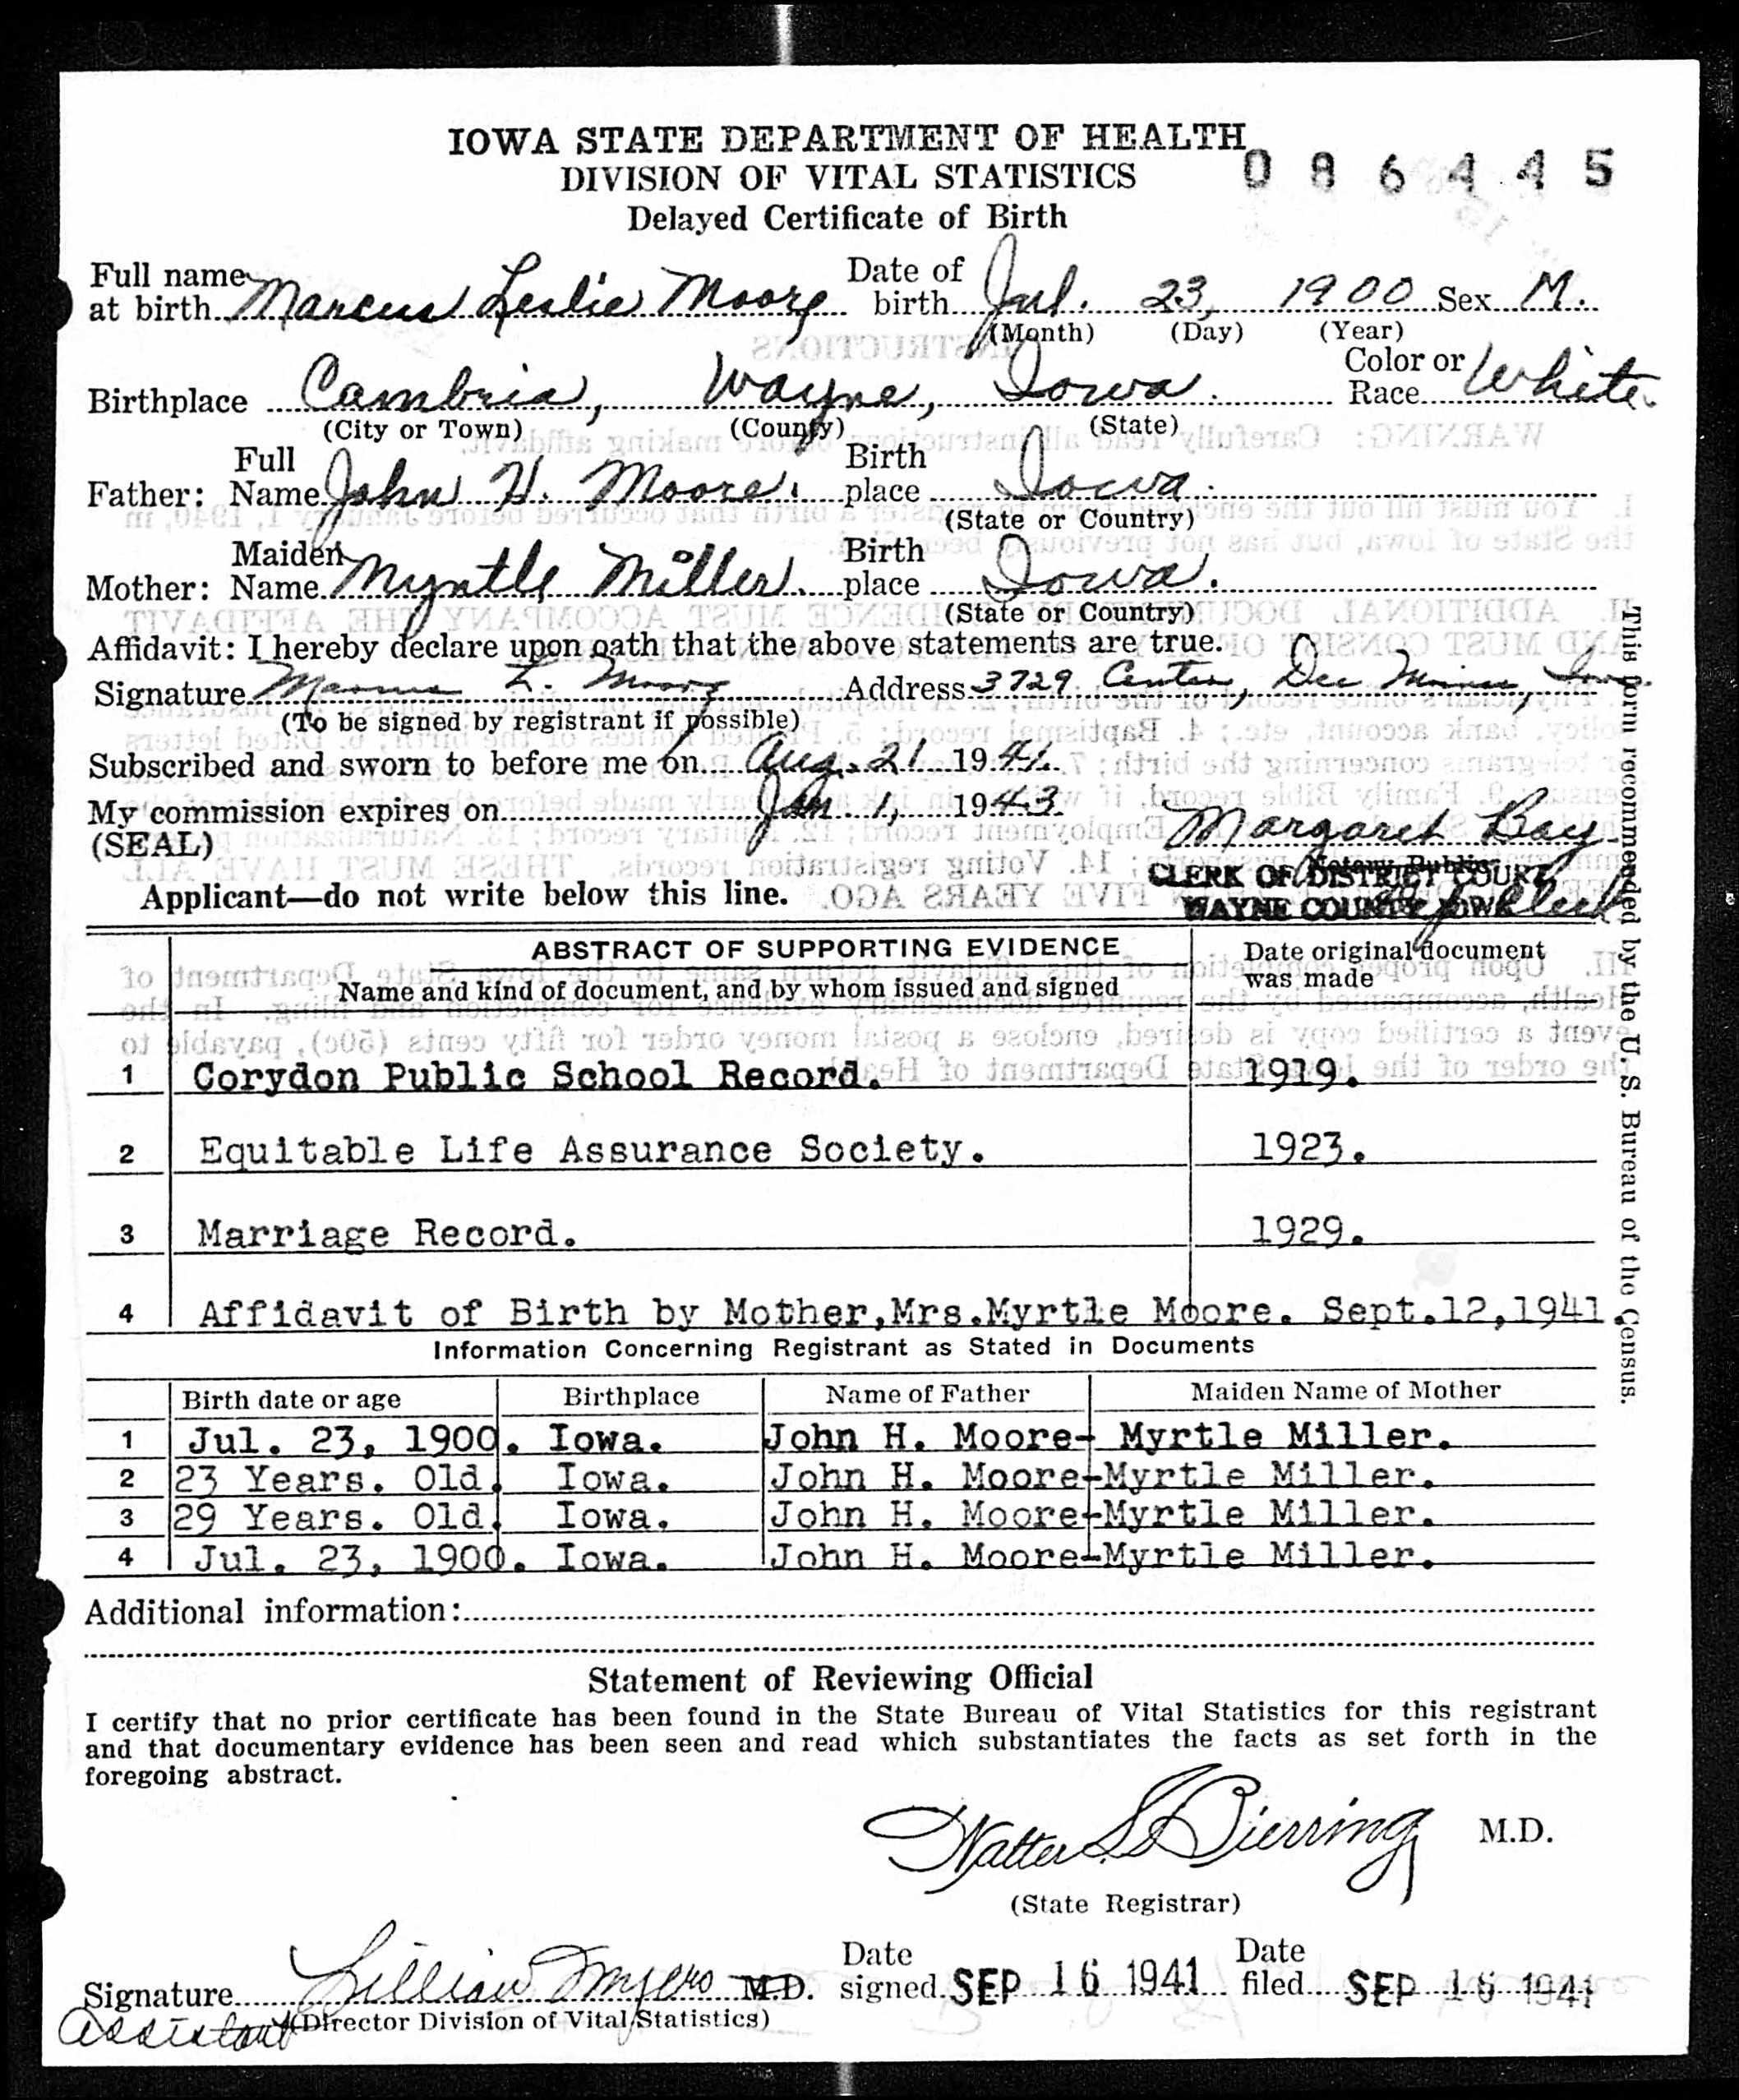 IOWA STATE DEPARTMENT OF HEALTH
DIVISION OF VITAL STATISTICS 086445
Delayed Certificate of Birth
Full name at birth Marcus Leslie Moore Date of birth Jul. 23, 1900 Sex M.
(Month) (Day) (Year)
Birthplace Cambria, Wayne, Iowa. Color or Race White.
(City or Town) (County) (State)
Father: Full Name John H. Moore. Birth place Iowa.
(State or Country)
Mother: Maiden Name Myrtle Miller. Birth place Iowa.
(State or Country)
Affidavit: I hereby declare upon oath that the above statements are true.
Signature Marcus L. Moore Address 3729 Center, Des Moines, Iowa.
(To be signed by registrant if possible)
Subscribed and sworn to before me on Aug. 21 1941.
My commission expires on Jan. 1, 1943.
(SEAL) Margaret Bay
Notary Public
CLERK OF DISTRICT COURT
WAYNE COUNTY IOWA
Applicant—do not write below this line.
ABSTRACT OF SUPPORTING EVIDENCE
Name and kind of document, and by whom issued and signed
Date original document was made
1 Corydon Public School Record. 1919.
2 Equitable Life Assurance Society. 1923.
3 Marriage Record. 1929.
4 Affidavit of Birth by Mother,Mrs.Myrtle Moore. Sept.12,1941.
Information Concerning Registrant as Stated in Documents
Birth date or age Birthplace Name of Father Maiden Name of Mother
1 Jul. 23, 1900. Iowa. John H. Moore- Myrtle Miller.
2 23 Years. Old. Iowa. John H. Moore-Myrtle Miller.
3 29 Years. Old. Iowa. John H. Moore-Myrtle Miller.
4 Jul. 23, 1900. Iowa. John H. Moore-Myrtle Miller.
Additional information:
Statement of Reviewing Official
I certify that no prior certificate has been found in the State Bureau of Vital Statistics for this registrant
and that documentary evidence has been seen and read which substantiates the facts as set forth in the
foregoing abstract.
Walter L. Bierring M.D.
(State Registrar)
Signature Lillian Myers M.D. Date signed SEP 16 1941 Date filed SEP 16 1941
Assistant (Director Division of Vital Statistics)
This form recommended by the U. S. Bureau of the Census.